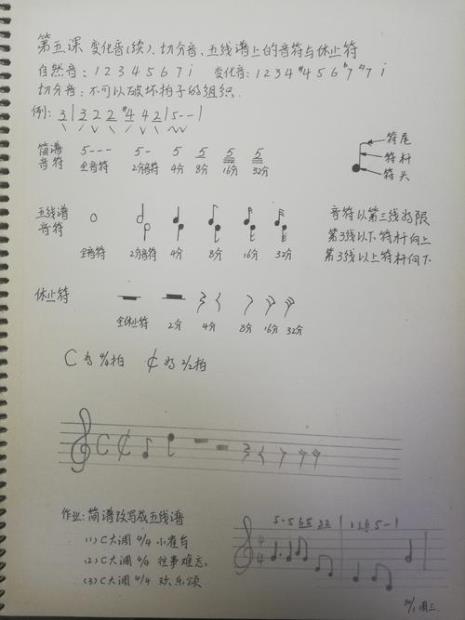 第五课 变化音(续)、切分音、五线谱上的音符与休止符
自然音: 1 2 3 4 5 6 7 i 变化音: 1 2 3 4 #4 5 6 b7 #7 i
切分音: 不可以破坏拍子的组织.
例: 3 | 3 2 2 #4 4 2 | 5 - - |
简谱音符 5 - - - 5 - 5 5 5 5
全音符 2分音符 4分 8分 16分 32分
符尾
符杆
符头
五线谱音符
全音符 2分音符 4分 8分 16分 32分
音符以第三线为限
第3线以下符杆向上
第3线以上符杆向下
休止符
全休止符 2分 4分 8分 16分 32分
C为4/4拍 ¢为2/2拍
C ¢
作业: 简谱改写成五线谱
(1) C大调 4/4 小雀
(2) C大调 4/4 往事难忘.
(3) C大调 4/4 欢乐颂
周三